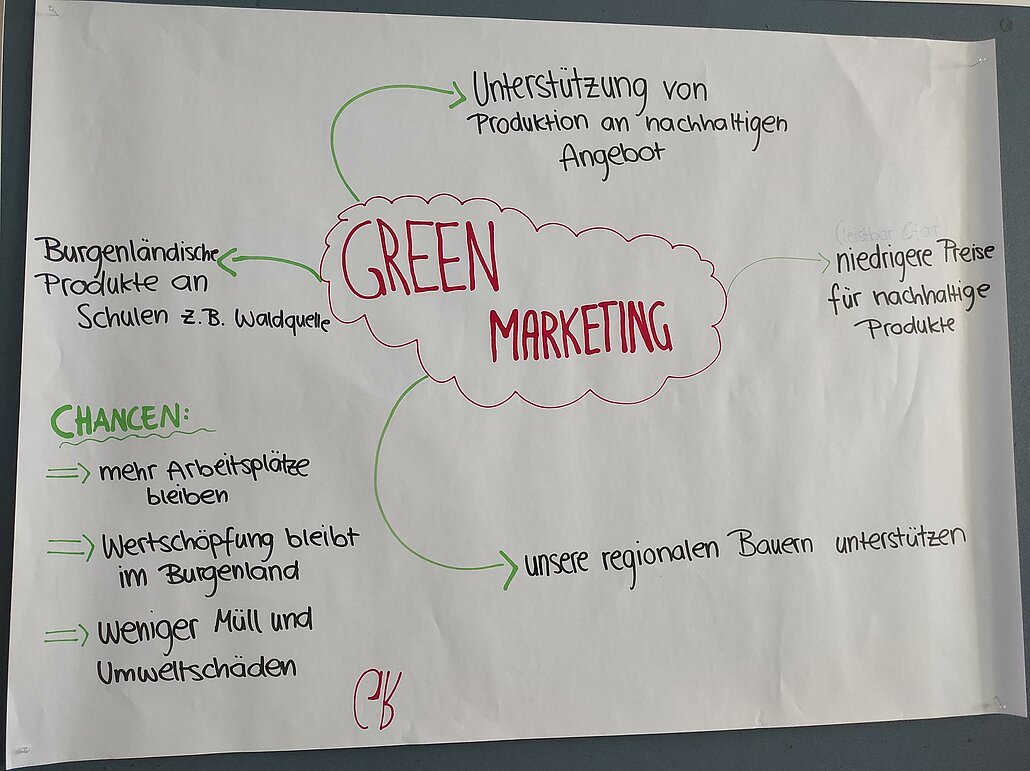 Unterstützung von
Produktion an nachhaltigen
Angebot
GREEN
MARKETING
Burgenländische
Produkte an
Schulen z.B. Waldquelle
niedrigere Preise
für nachhaltige
Produkte
CHANCEN:
mehr Arbeitsplätze
bleiben
Wertschöpfung bleibt
im Burgenland
Weniger Müll und
Umweltschäden
unsere regionalen Bauern unterstützen